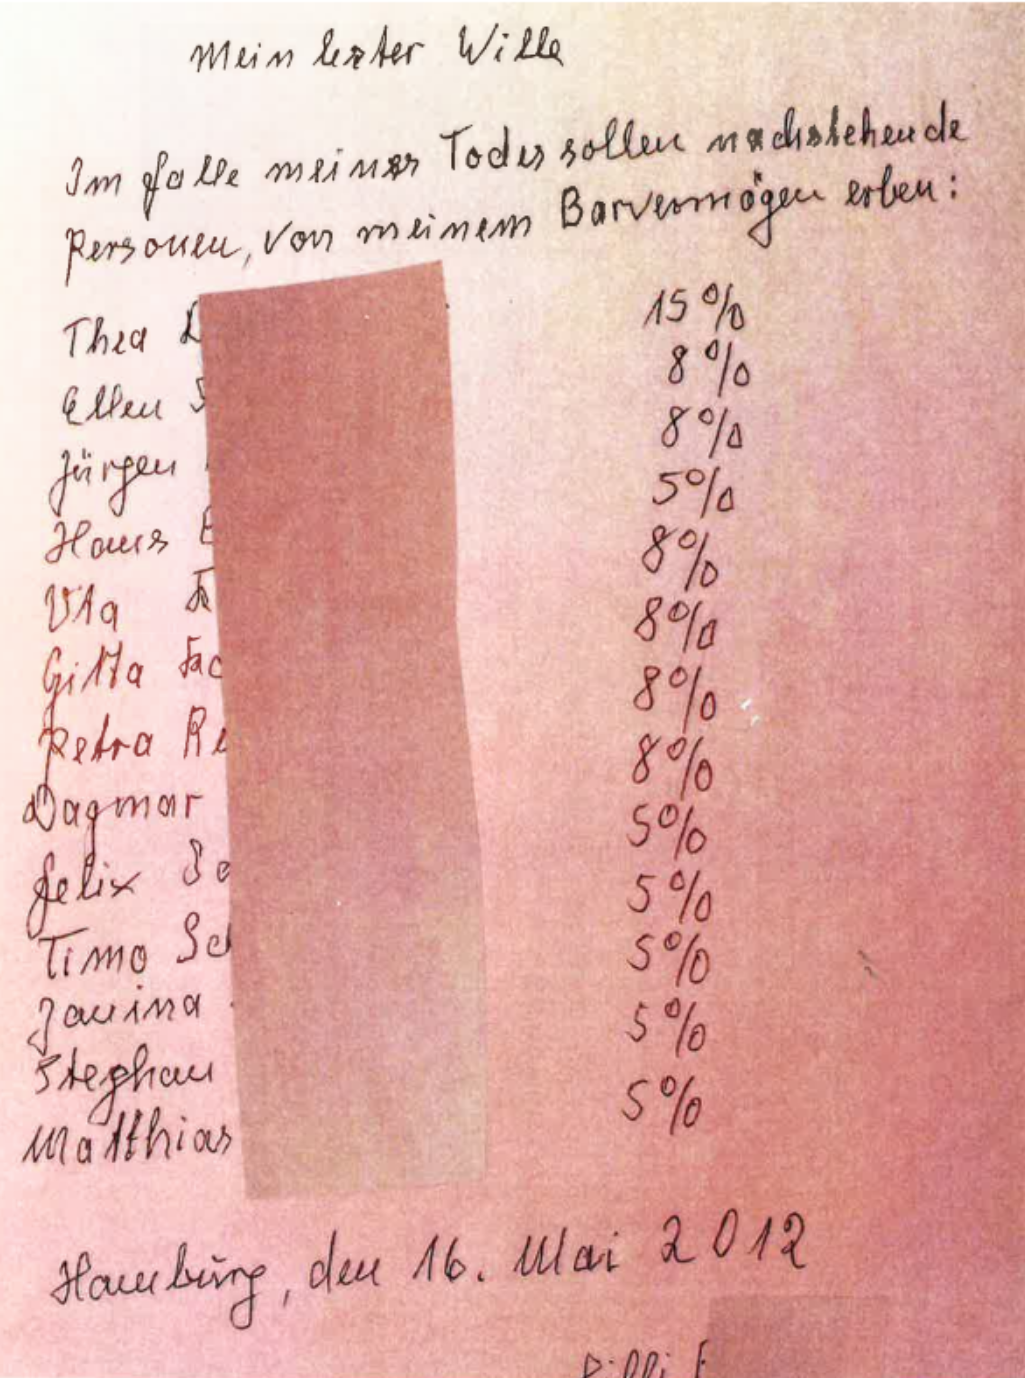 Mein lezter Wille
Im Falle meines Todes sollen nachstehende
Personen, von meinem Barvermögen erben:
Thea 15%
Ellen 8%
Jürgen 8%
Hans 5%
Uta 8%
Gitta 8%
Petra Re 8%
Dagmar 8%
Felix 5%
Timo Sc 5%
Janina 5%
Stephan 5%
Matthias 5%
Hamburg, den 16. Mai 2012